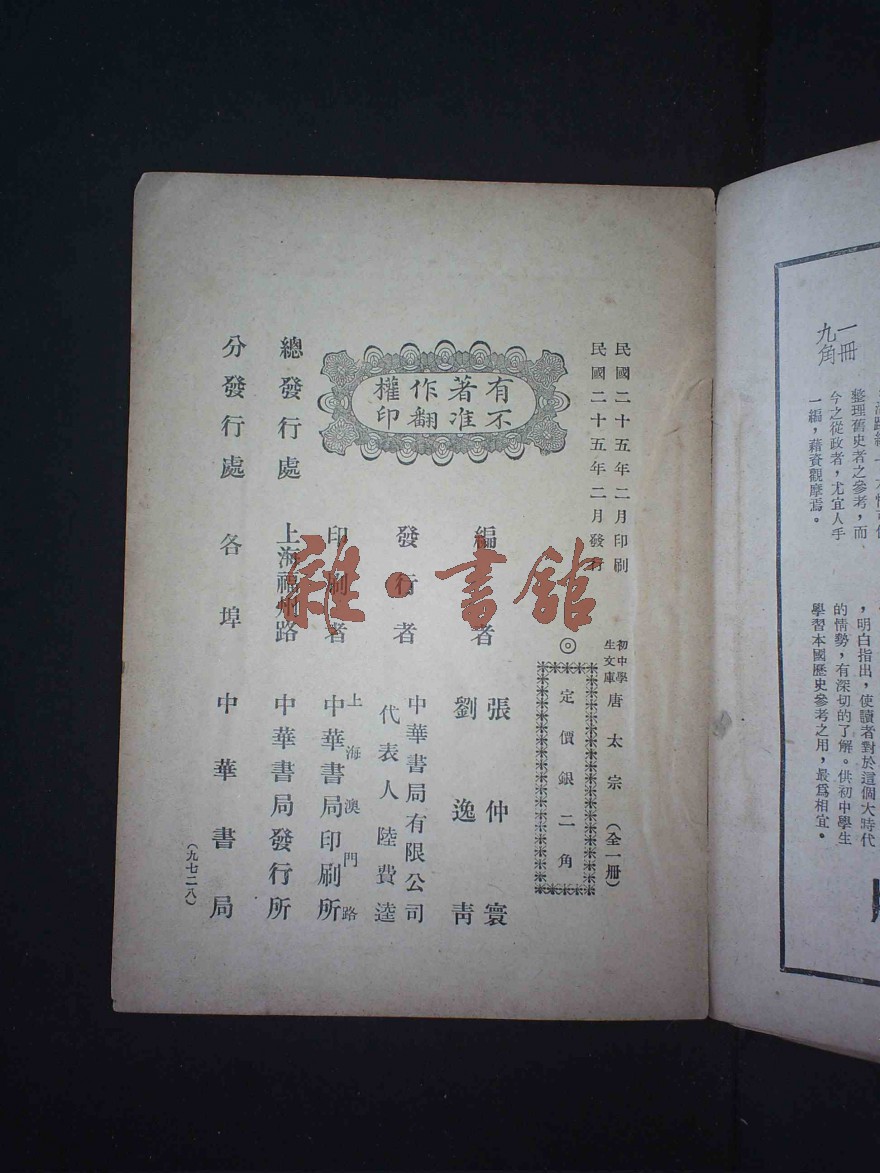 民國二十五年二月印刷
民國二十五年二月發行
有著作權
不准翻印
初中學
生文庫
唐太宗（全一冊）
◎
定價銀二角
編者
張仲寰
劉逸青
發行者
中華書局有限公司
代表人陸費逵
印刷者
上海澳門路
中華書局印刷所
總發行處
上海福州路
中華書局發行所
分發行處
各埠
中華書局
（九七二八）
雜·書館
一冊
九角
整理舊史者之參考，而
今之從政者，尤宜人手
一編，藉資觀摩焉。
，明白指出，使讀者對於這個大時代
的情勢，有深切的了解。供初中學生
學習本國歷史參考之用，最爲相宜。